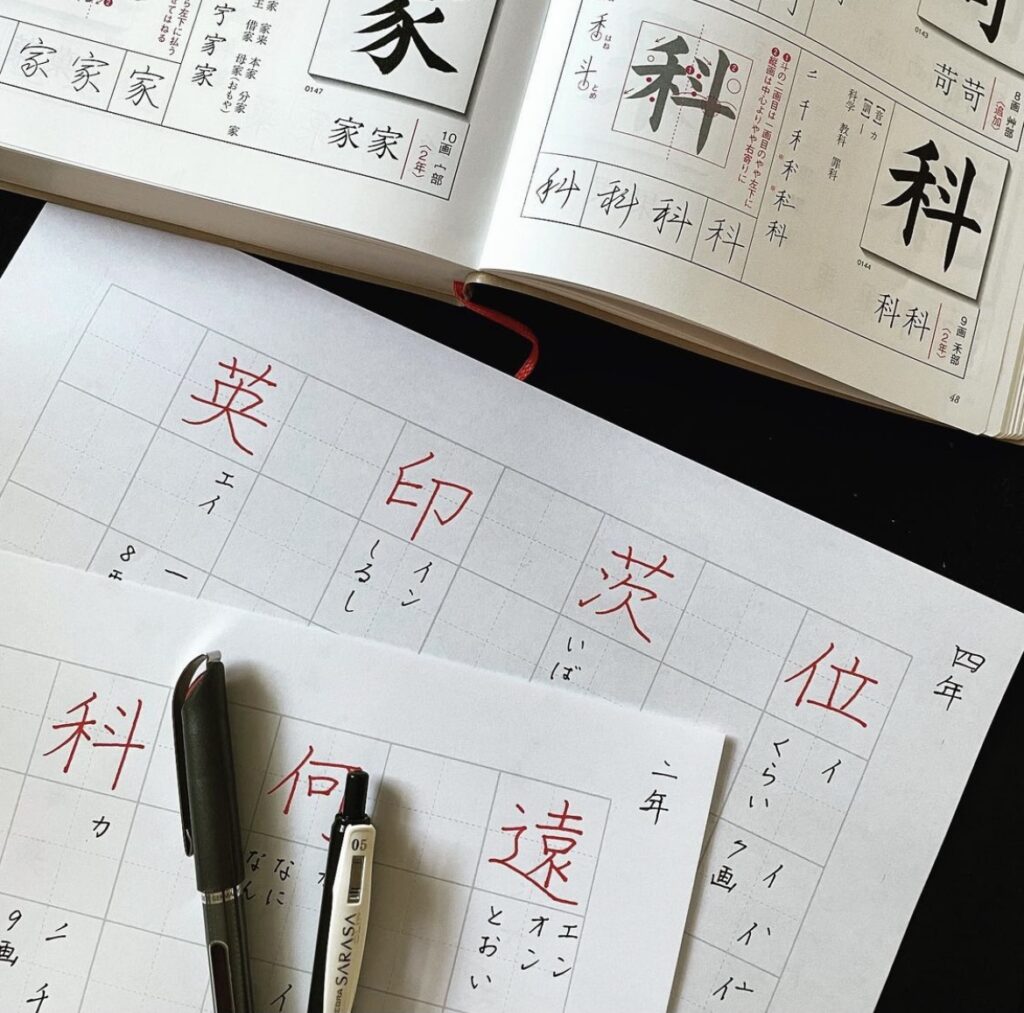 家
家家
10画 宀部
〈2年〉
0147
家 家 家
宀 家 家
王 借家 母家(おもや)
家来 本家 分家 家
0143
苛苛
8画 艸部
〈追加〉
科
科科
9画 禾部
〈2年〉
0144
【音】カ
【訓】—
科学 教科 罪科
二 千 禾 禾 科 科
❶斗の二画目は一画目のやや左下に
❷縦画は中心よりやや右寄りに
科
禾 はね
斗 とめ
科 科 科 科
48
四年
位
イ
くらい
イ イ イ
7画
茨
いば
印
イン
しるし
英
エイ
一
8画
二年
遠
エン
オン
とおい
何
なに
なん
イ
科
カ
二 千
9画
05
SARASA